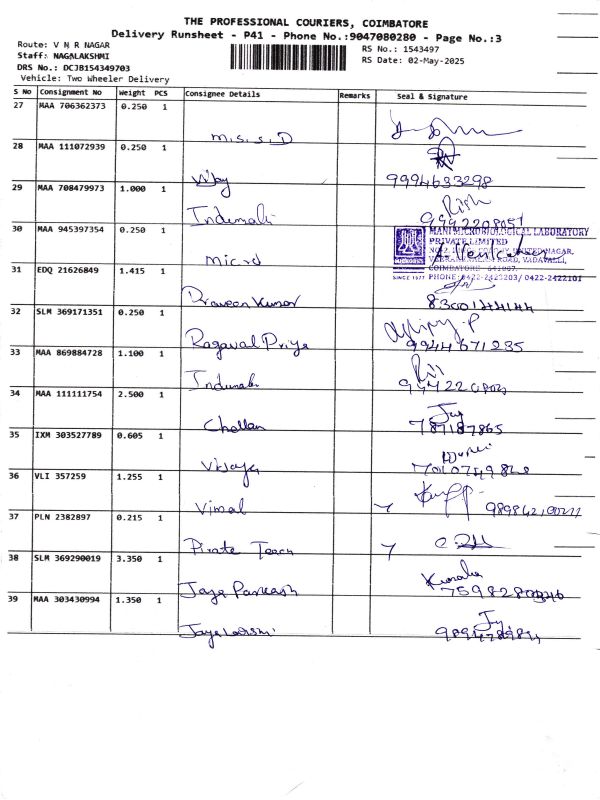 THE PROFESSIONAL COURIERS, COIMBATORE
Delivery Runsheet - P41 - Phone No.:9047080280 - Page No.:3
Route: V N R NAGAR
Staff: NAGALAKSHMI
DRS No.: DCJB154349703
Vehicle: Two Wheeler Delivery
RS No.: 1543497
RS Date: 02-May-2025
S No Consignment No Weight PCS Consignee Details Remarks Seal & Signature
27 MAA 706362373 0.250 1
M.S.S.D
28 MAA 111072939 0.250 1
Vijay 9994633298
29 MAA 708479973 1.000 1
Indumati
30 MAA 945397354 0.250 1
Micro
MANI MICROBIOLOGICAL LABORATORY
PRIVATE LIMITED
COIMBATORE - 641007.
SINCE 1977 PHONE: 0422-2423203/ 0422-2422101
31 EDQ 21626849 1.415 1
Praveen Kumar
32 SLM 369171351 0.250 1
Ragaval Priya 9944671235
33 MAA 869884728 1.100 1
34 MAA 111111754 2.500 1
Chellan 787187865
35 IXM 303527789 0.605 1
Vijaya
36 VLI 357259 1.255 1
Vimal
37 PLN 2382897 0.215 1
Pirate Teach
38 SLM 369290019 3.350 1
Jaya Parkash
39 MAA 303430994 1.350 1